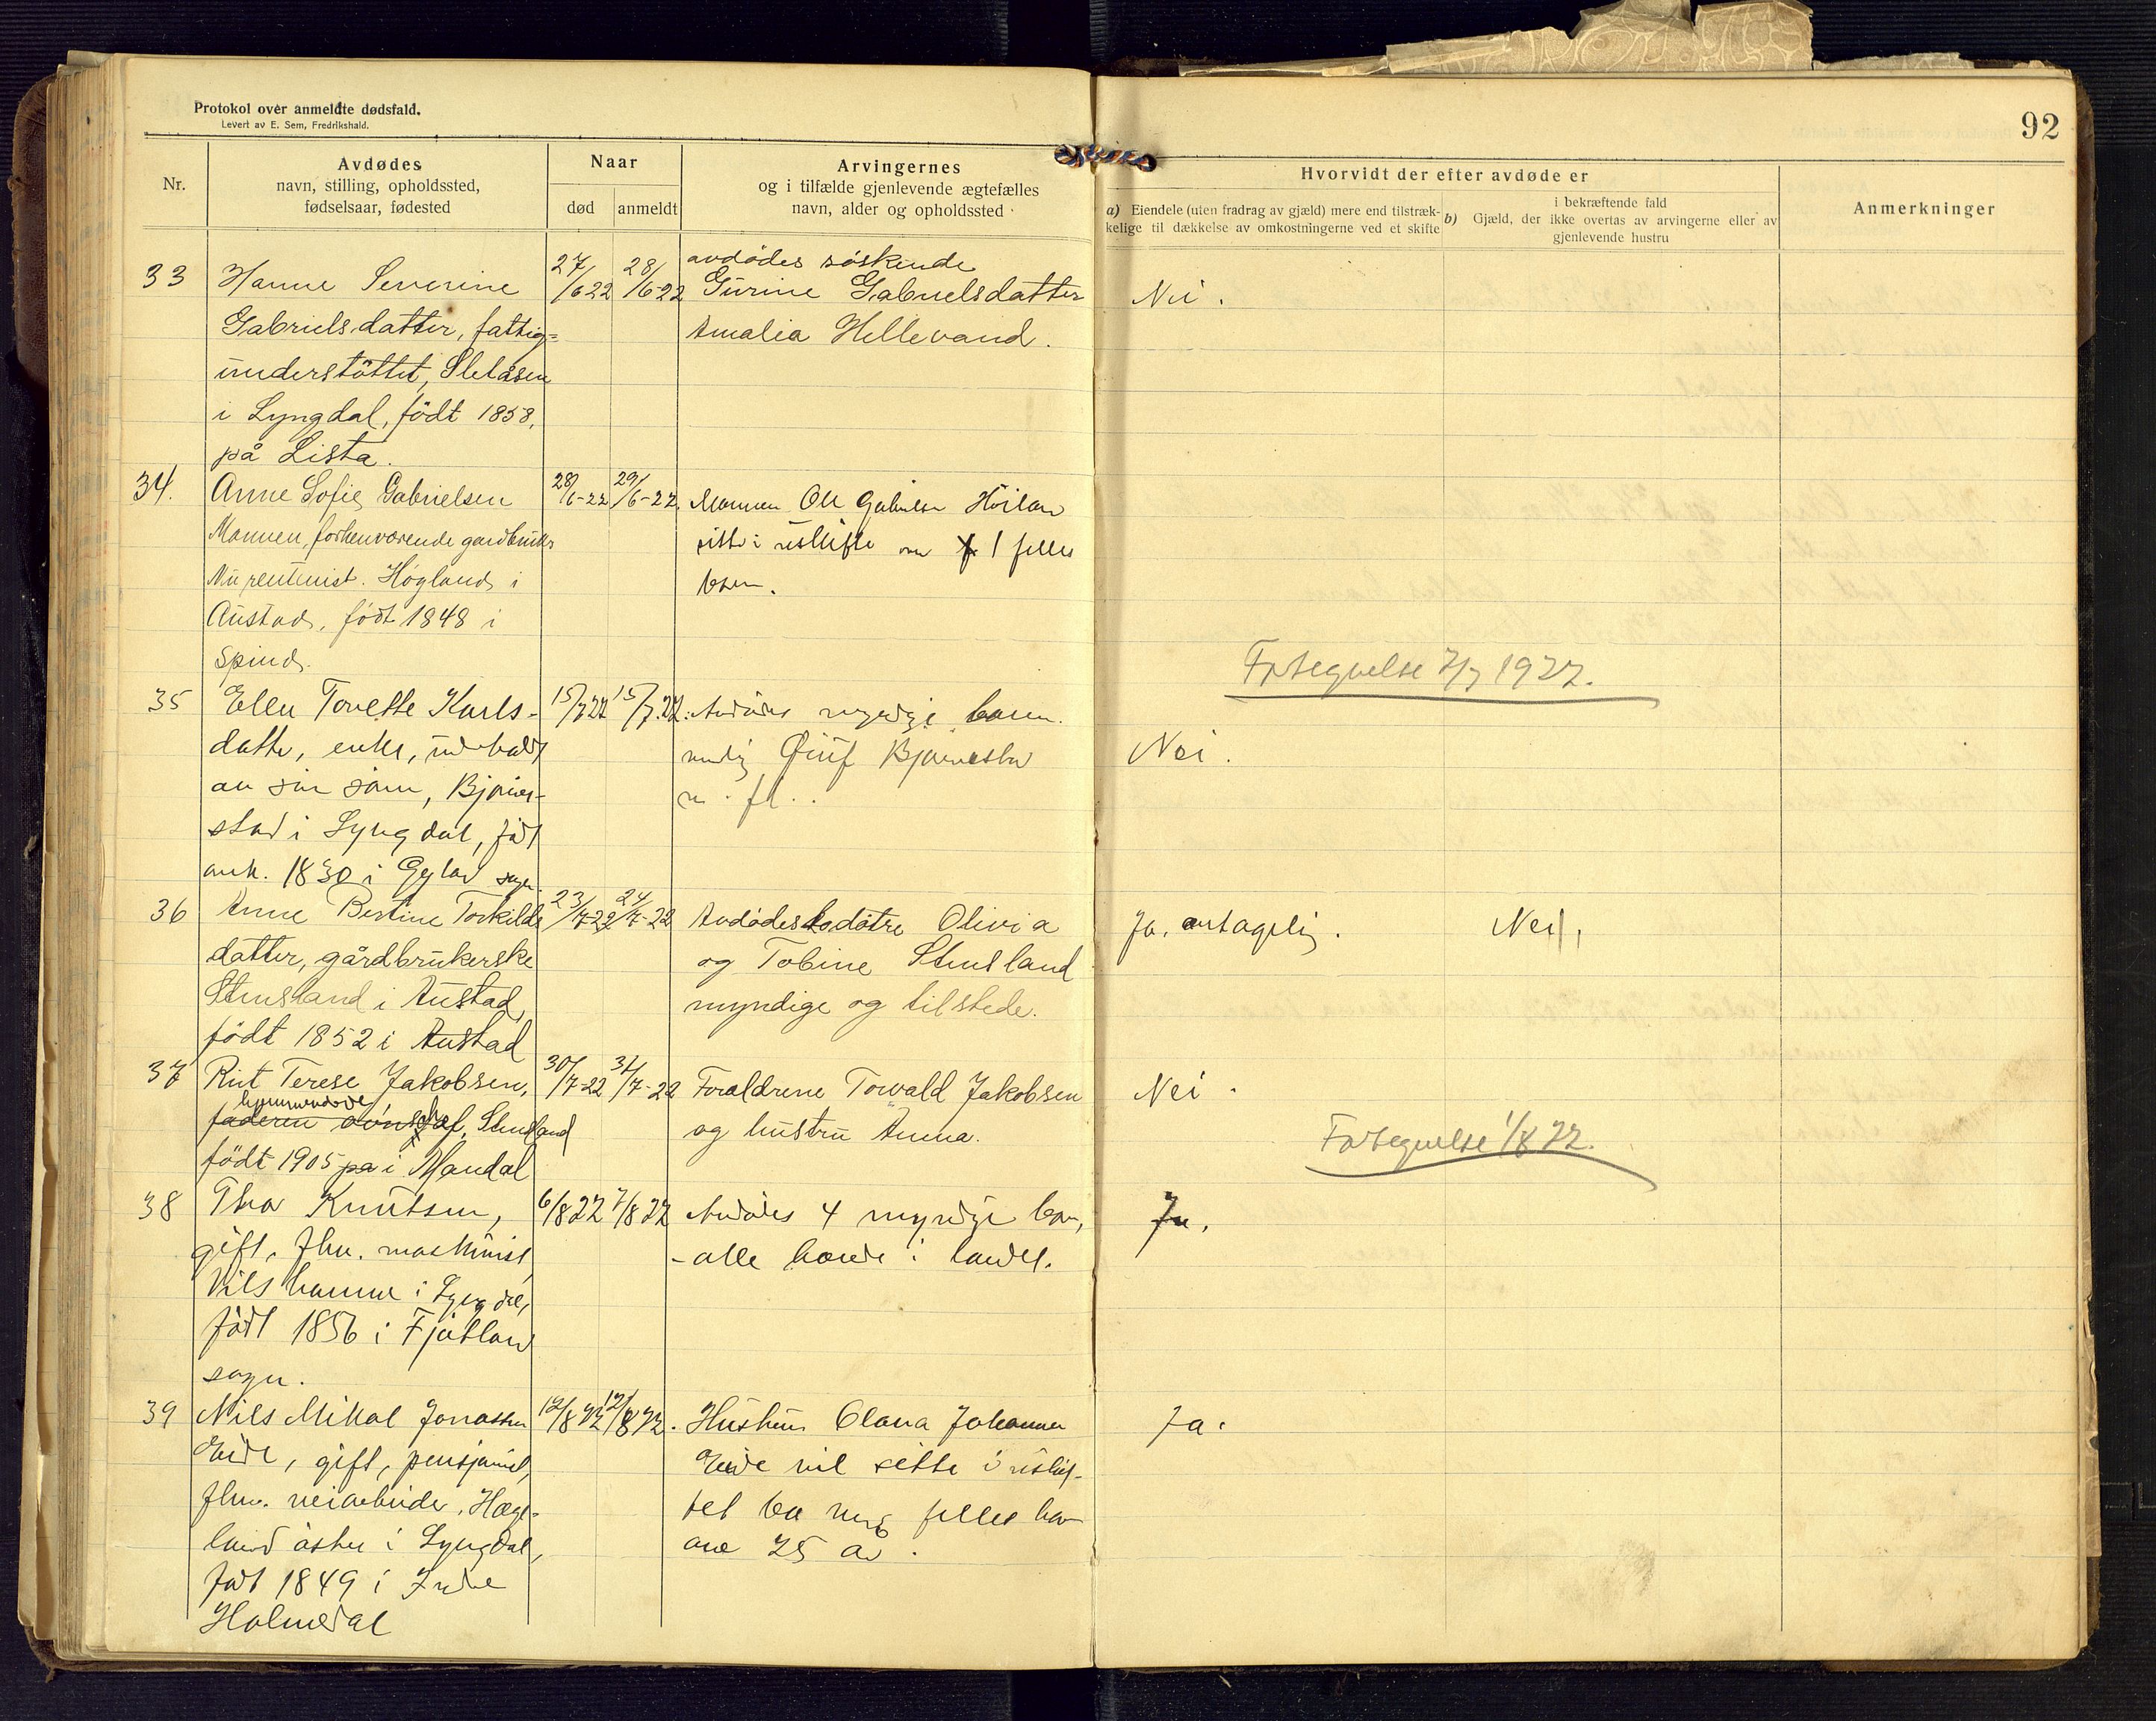 Protokol over anmeldte dødsfald.
Levert av E. Sem, Fredrikshald.
92
Nr.
Avdødes
navn, stilling, opholdssted,
fødselsaar, fødested
Naar
død
anmeldt
Arvingernes
og i tilfælde gjenlevende ægtefælles
navn, alder og opholdssted
Hvorvidt der efter avdøde er
a) Eiendele (uten fradrag av gjæld) mere end tilstræk-
kelige til dækkelse av omkostningerne ved et skifte
i bekræftende fald
b) Gjæld, der ikke overtas av arvingerne eller av
gjenlevende hustru
Anmerkninger
33
Hanne Severine
Gabrielsdatter, fattig=
understöttet, Sletåsen
i Lyngdal, födt 1858,
på Lista.
27/6 22
28/6-22
avdödes söskende
Gurine Gabrielsdatter
Amalia Hellevand.
Nei.
34.
Anne Sofie Gabrielsen
Mannen, forhenværende gardbruker
Nu rentenist. Høgland i
Austad, født 1848 i
Spind.
28/6-22
29/6-22.
Mannen Ole Gabrielsen Höiland
sitter i uskifte 1 felles
barn.
Fortegnelse 7/7 1922.
35
Ellen Tonette Karls-
datter, enke, underholdt
av sin sönn, Bjørne-
stad i Lyngdal, født
ank. 1830 i Gyland sogn.
15/7 22
15/7.22.
Avdödes myndige barn.
m. fl..
Nei.
36
Anne Bertine Torkilds
datter, gårdbrukerske
Stensland i Austad,
födt 1852 i Austad
23/7-22
24/7-22
Avdödes to dötre Olivia
og Tobine Stensland
myndige og tilstede.
Ja, antagelig.
Nei.
37
Rut Terese Jakobsen,
hjemmeværende
faderen Stensland
födt 1905 på i Mandal
30/7-22
31/7-22
Foraldrene Torvald Jakobsen
og hustru Anna.
Nei.
Fortegnelse 1/8 22.
38
Knutsen,
gift, fhv. maskinist,
i Lyngdal,
født 1856 i Fjotland
sogn.
6/8 22
7/8 22
Avdödes 4 myndige barn,
- alle i landet.
Ja.
39
Nils Mikal Jonassen
Eide, gift, pensjonist,
fhv. veiarbeider, Hæge-
land östre i Lyngdal,
født 1849 i Indre
Holmedal
12/8 22
12/8 22.
Hustruen Olava Johanne
Eide vil sitte i uskif-
tet bo med felles barn
over 25 år.
Ja.